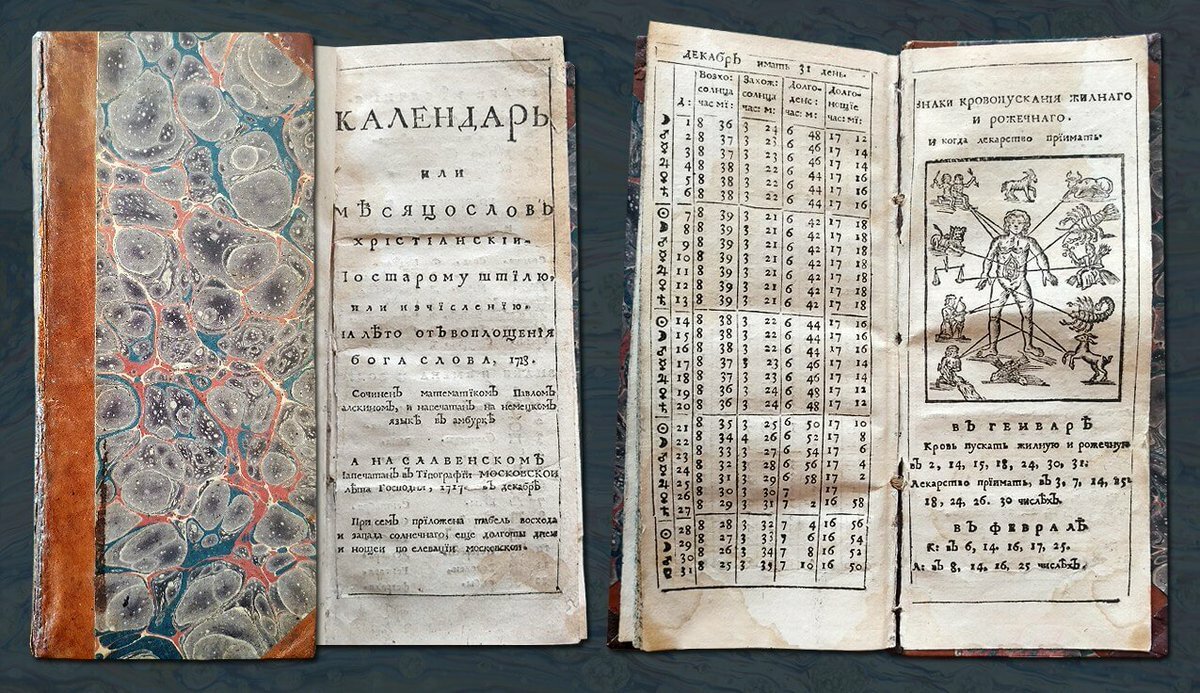 КАЛЕНДАРЬ
ИЛИ
МѢСЯЦОСЛОВЪ
ХРІСТІАНСКІИ.
По старому штілю,
или изчісленію
на лѣто отъ воплощенія
бога слова, 1718.
Сочиненъ математікомъ Павломъ
алскиномъ, и напечатанъ на немецкомъ
языкѣ въ амбуркѣ
А НА СЛАВЕНСКОМЪ
напечатанъ въ Тіпографіи МОСКОВСКОЙ
лѣта Господня, 1717. въ декабрѣ
При семъ пріложена табель восхода
и запада солнечнаго, еще долготы днеи
и нощеи по елевации московскои.
ДЕКАБРЬ имать 31 день.
Д: Восхо: солнца час: мі: Захож: солнца час: м: Долго- денс: час: м: Долго- нощіе час: мі:
☽ 1 8 36 3 24 6 48 17 12
♂ 2 8 37 3 23 6 46 17 14
☿ 3 8 37 3 23 6 46 17 14
♃ 4 8 38 3 22 6 44 17 16
♀ 5 8 38 3 22 6 44 17 16
♄ 6 8 38 3 22 6 44 17 16
☉ 7 8 39 3 21 6 42 17 18
☽ 8 8 39 3 21 6 42 17 18
♂ 9 8 39 3 21 6 42 17 18
☿ 10 8 39 3 21 6 42 17 18
♃ 11 8 39 3 21 6 42 17 18
♀ 12 8 39 3 21 6 42 17 18
♄ 13 8 39 3 21 6 42 17 18
☉ 14 8 38 3 22 6 44 17 16
☽ 15 8 38 3 22 6 44 17 16
♂ 16 8 38 3 22 6 44 17 16
☿ 17 8 37 3 23 6 46 17 14
♃ 18 8 37 3 23 6 46 17 14
♀ 19 8 36 3 24 6 48 17 12
♄ 20 8 36 3 24 6 48 17 12
☉ 21 8 35 3 25 6 50 17 10
☽ 22 8 34 4 26 6 52 17 8
♂ 23 8 33 3 27 6 54 17 6
☿ 24 8 32 3 28 6 56 17 4
♃ 25 8 31 3 29 6 58 17 2
♀ 26 8 30 3 30 7 17
♄ 27 8 29 3 31 7 2 16 58
☉ 28 8 28 3 32 7 4 16 56
☽ 29 8 27 3 33 7 6 16 54
♂ 30 8 26 3 34 7 8 16 52
☿ 31 8 25 3 35 7 10 16 50
ЗНАКИ КРОВОПУСКАНІЯ ЖИЛНАГО
И РОЖЕЧНАГО.
И когда лекарство пріимать.
ВЪ ГЕНВАРѢ
Кровь пускать жилную и рожечную
въ 2, 14, 15, 18, 24, 30, 31.
Лекарство пріимать, въ 3, 7, 14, 15,
18, 24, 26. 30 числѣхъ.
ВЪ ФЕВРАЛѢ
К: въ 6, 14. 16, 17, 25.
Л: въ 8, 14, 16, 25 числѣхъ.